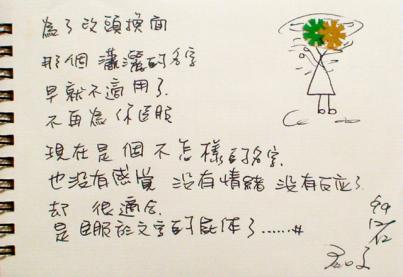 為了改頭換面
那個瀟灑的名字
早就不適用了
不再為你臣服
現在是個不怎樣的名字
也沒有感覺 沒有情緒 沒有反应了
却 很適合
是臣服於文字的屍体了......#
99
12/12